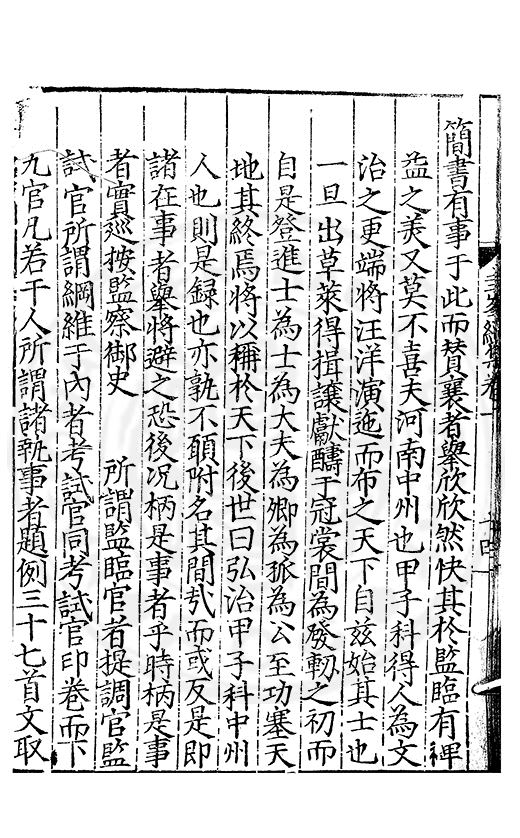 簡書有事于此而賛襄者舉欣欣然快其於監臨有裨
益之美又莫不喜夫河南中州也甲子科得人為文
治之更端將汪洋演迤而布之天下自茲始其士也
一旦出草萊得揖讓獻酬于冠裳間為發軔之初而
自是登進士為士為大夫為卿為孤為公至功塞天
地其終焉將以稱於天下後世曰弘治甲子科中州
人也則是録也亦孰不願附名其間㢤而或反是即
諸在事者舉將避之恐後况柄是事者乎時柄是事
者實廵按監察御史　所謂監臨官者提調官監
試官所謂綱維于內者考試官同考試官印卷而下
九官凡若干人所謂諸執事者題例三十七首文取